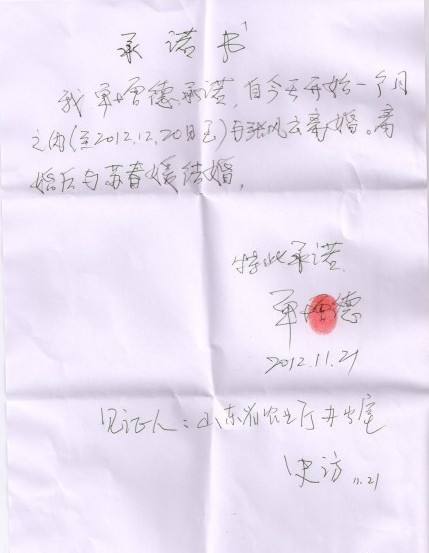 承诺书
我单增德承诺,自今天开始一个月
之内(至2012.12.20日止)与张风云离婚。离
婚后与苏春媛结婚,
特此承诺.
单增德
2012.11.21
见证人:山东省农业厅
史访 11.21